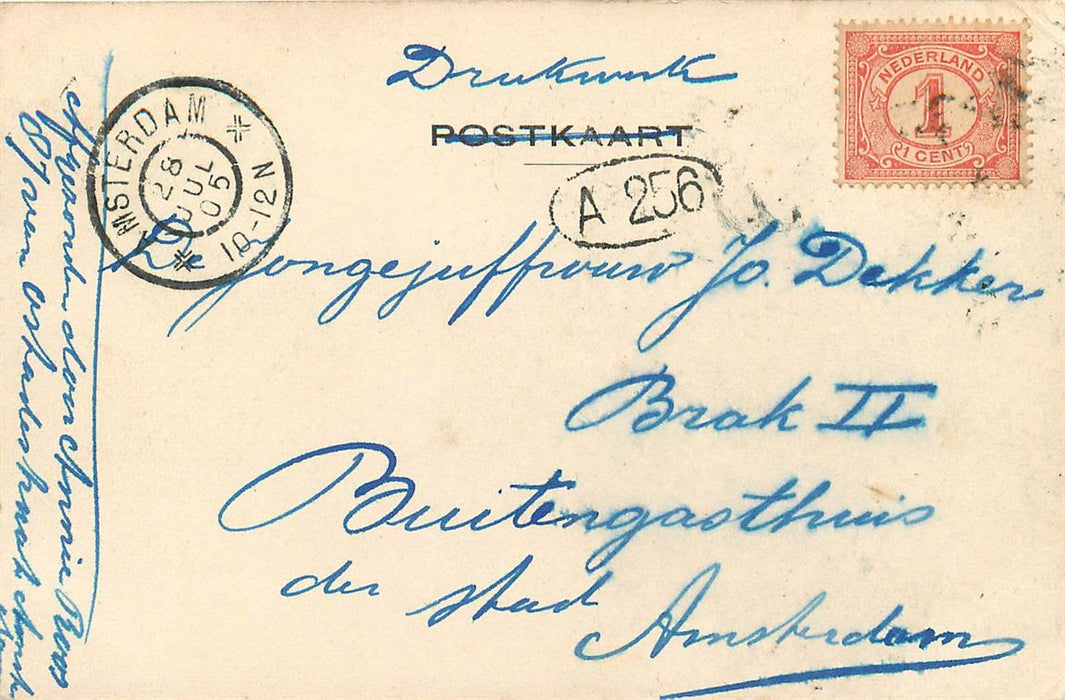 Drukwerk
POSTKAART
NEDERLAND
1
1 CENT
AMSTERDAM
28
JUL
05
10-12 N
A 256
De jongejuffrouw Jo. Dekker
Brak II
Buitengasthuis
der stad
Amsterdam
Afzender door Annie Roos
v. Ostadestraat